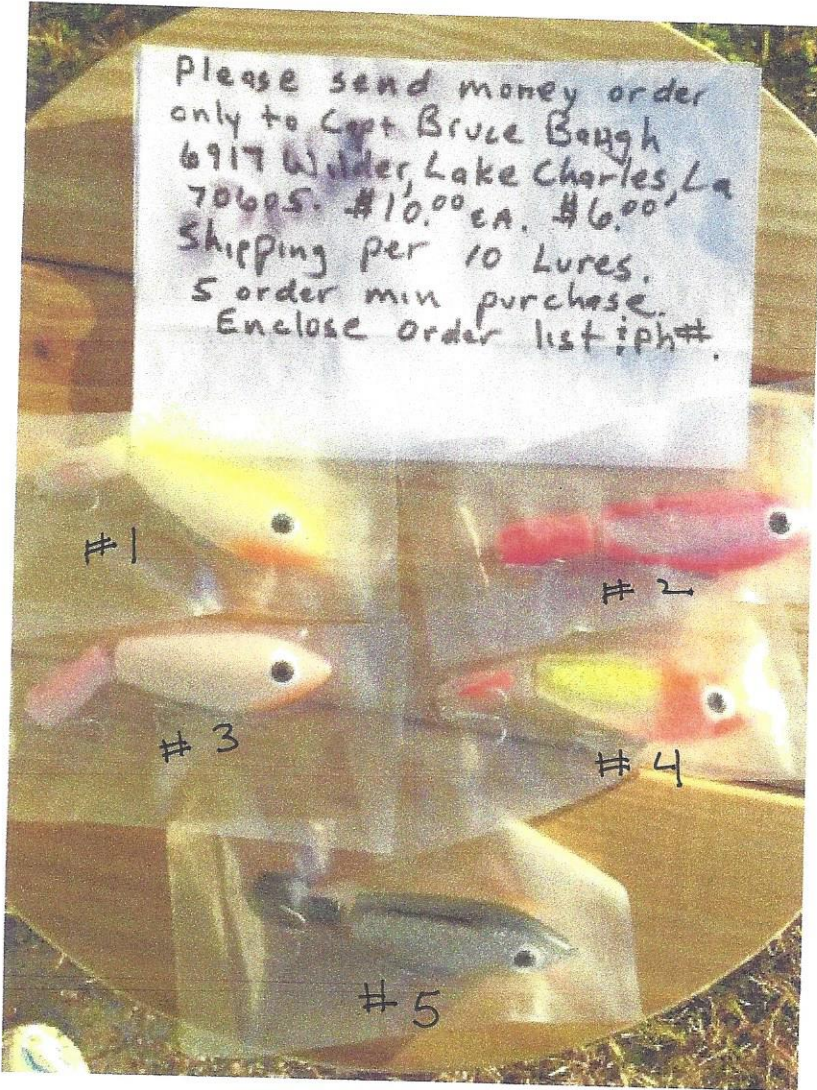 Please send money order
only to Capt Bruce Baugh
6917 Wilder, Lake Charles, La
70605. $10.00 EA. $6.00
Shipping per 10 Lures.
5 order min purchase.
Enclose order list & ph#.
#1
#2
#3
#4
#5